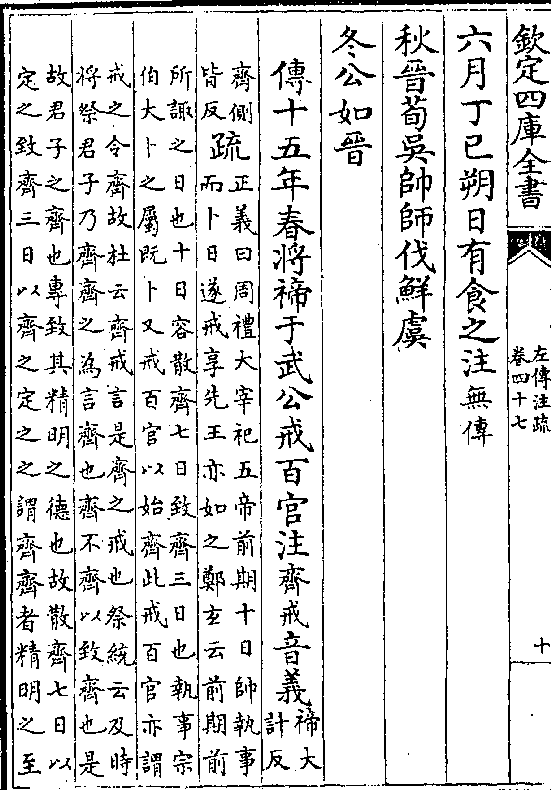 欽定四庫全書
左傳注疏
卷四十七
十
六月丁巳朔日有食之注無傳
秋晉荀吳帥師伐鮮虞
冬公如晉
傳十五年春將禘于武公戒百官注齊戒音義禘大
計反
齊側
皆反
疏正義曰周禮大宰祀五帝前期十日帥執事
而卜日遂戒享先王亦如之鄭玄云前期前
所諏之日也十日容散齊七日致齊三日也執事宗
伯大卜之屬既卜又戒百官以始齊此戒百官亦謂
戒之令齊故杜云齊戒言是齊之戒也祭統云及時
將祭君子乃齊齊之為言齊也齊不齊以致齊也是
故君子之齊也專致其精明之德也故散齊七日以
定之致齊三日以齊之定之之謂齊齊者精明之至